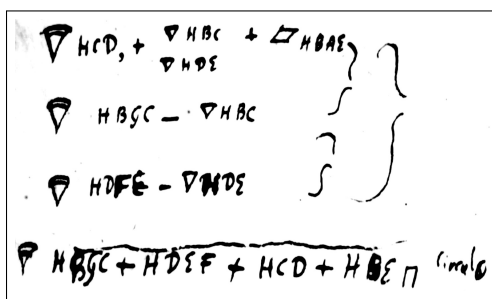 HCD, + ▽ HBC + ▱ HBAE
▽ HDE
HBGC — ▽ HBC
HDFE — ▽ HDE
HBGC + HDEF + HCD + HBE ⊓ circulo